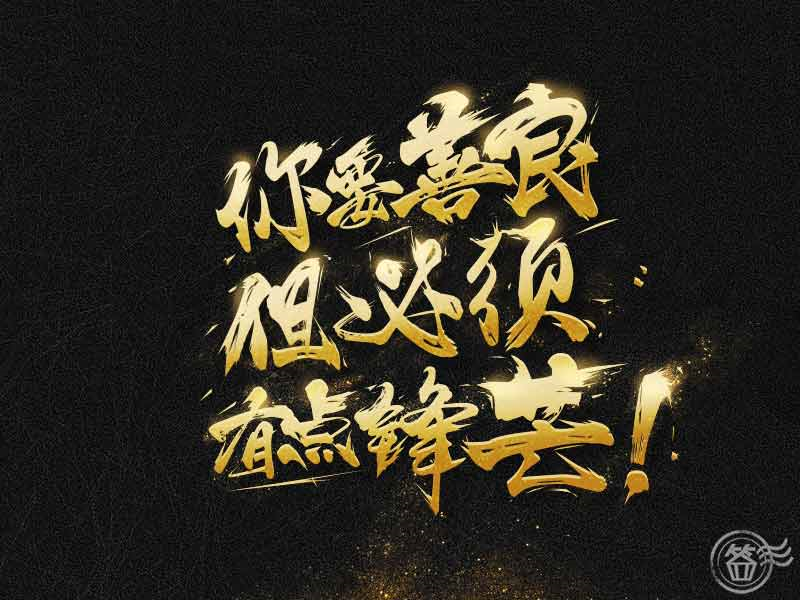 你要善良
但必须
有点锋芒！